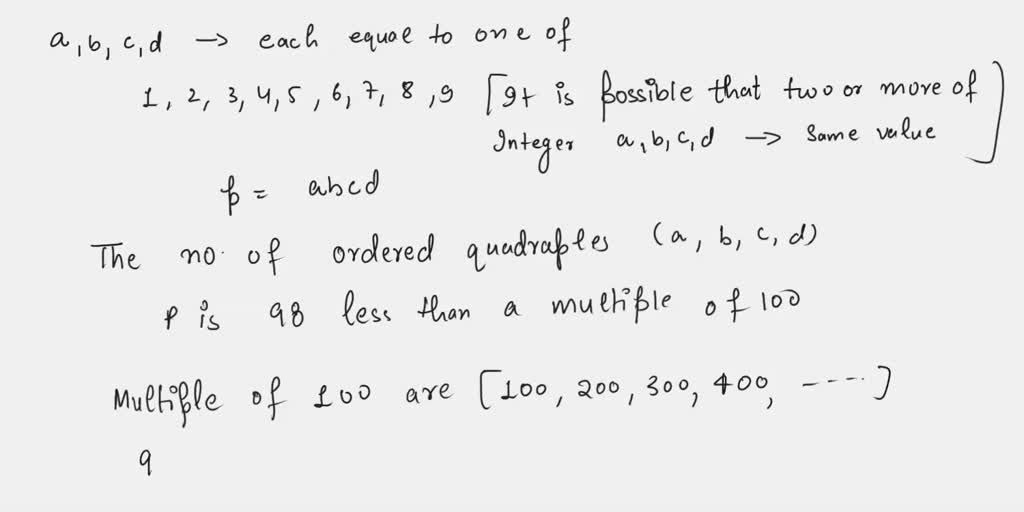 a, b, c, d → each equal to one of
1, 2, 3, 4, 5, 6, 7, 8, 9 [It is possible that two or more of
Integer a, b, c, d → same value]
p = abcd
The no. of ordered quadraples (a, b, c, d)
P is 98 less than a multiple of 100
Multiple of 100 are [100, 200, 300, 400, ----]
9